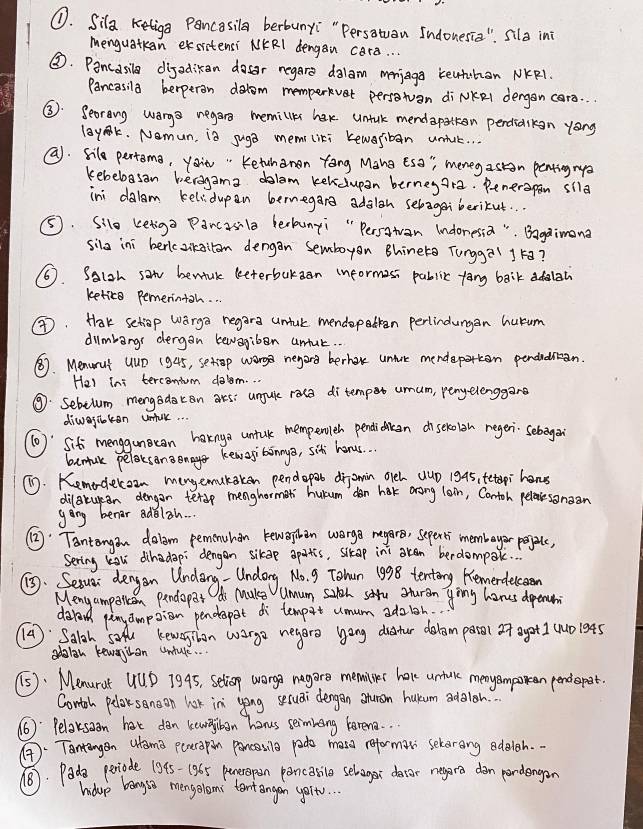 1). Sila Ketiga Pancasila berbunyi "Persatuan Indonesia". Sila ini
menguatkan eksistensi NKRI dengan cara...
2). Pancasila dijadikan dasar negara dalam menjaga keutuhan NKRI.
Pancasila berperan dalam memperkuat persatuan di NKRI dengan cara...
3). Seorang warga negara memiliki hak untuk mendapatkan pendidikan yang
layak. Namun, ia juga memiliki kewajiban untuk...
4). Sila pertama, yaitu "Ketuhanan Yang Maha Esa", menegaskan pentingnya
kebebasan beragama dalam kehidupan bernegara. Penerapan sila
ini dalam kehidupan bernegara adalah sebagai berikut...
5). Sila ketiga Pancasila berbunyi "Persatuan Indonesia". Bagaimana
sila ini berkaikaitan dengan semboyan Bhineka Tunggal Ika?
6). Salah satu bentuk keterbukaan informasi publik yang baik adalah
ketika pemerintah...
7). Hak setiap warga negara untuk mendapatkan perlindungan hukum
diimbangi dengan kewajiban untuk...
8). Menurut UUD 1945, setiap warga negara berhak untuk mendapatkan pendidikan.
Hal ini tercantum dalam...
9). Sebelum mengadakan aksi unjuk rasa di tempat umum, penyelenggara
diwajibkan untuk...
10). Siti menggunakan haknya untuk memperoleh pendidikan di sekolah negeri. Sebagai
bentuk pelaksanaannya kewajibannya, siti harus...
11). Kemerdekaan mengemukakan pendapat dijamin oleh UUD 1945, tetapi harus
dilakukan dengan tetap menghormati hukum dan hak orang lain, Contoh pelaksanaan
yang benar adalah...
12). Tantangan dalam pemenuhan kewajiban warga negara, seperti membayar pajak,
sering kali dihadapi dengan sikap apatis, sikap ini akan berdampak...
13). Sesuai dengan Undang-Undang No.9 Tahun 1998 tentang Kemerdekaan
Menyampaikan Pendapat di Muka Umum, salah satu aturan yang harus dipenuhi
dalam penyampaian pendapat di tempat umum adalah...
14). Salah satu kewajiban warga negara yang diatur dalam pasal 27 ayat 1 UUD 1945
adalah kewajiban untuk...
15). Menurut UUD 1945, setiap warga negara memiliki hak untuk menyampaikan pendapat.
Contoh pelaksanaan hak ini yang sesuai dengan aturan hukum adalah...
16). Pelaksaan hak dan kewajiban harus seimbang karena...
17). Tantangan utama penerapan pancasila pada masa reformasi sekarang adalah...
18). Pada periode 1945-1965 penerapan pancasila sebagai dasar negara dan pandangan
hidup bangsa mengalami tantangan yaitu...